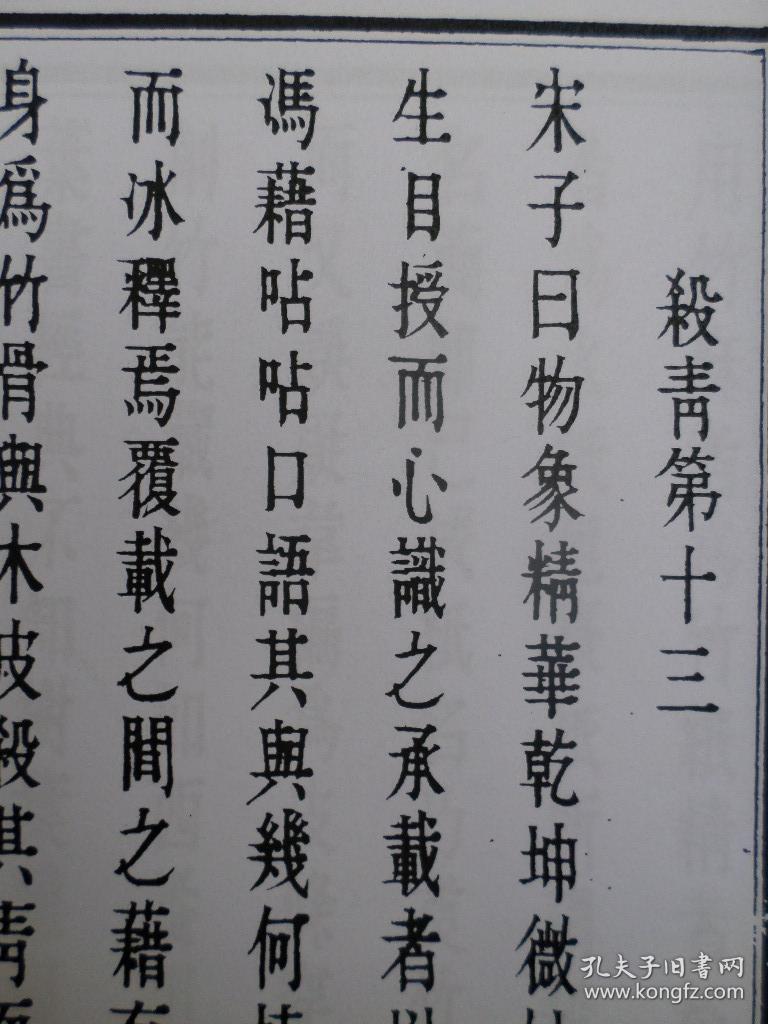 殺青第十三
宋子曰物象精華乾坤微
生目授而心識之承載者
馮藉呫呫口語其與幾何
而冰釋焉覆載之間之藉
身為竹骨與木皮殺其青
孔夫子旧书网
www.kongfz.com